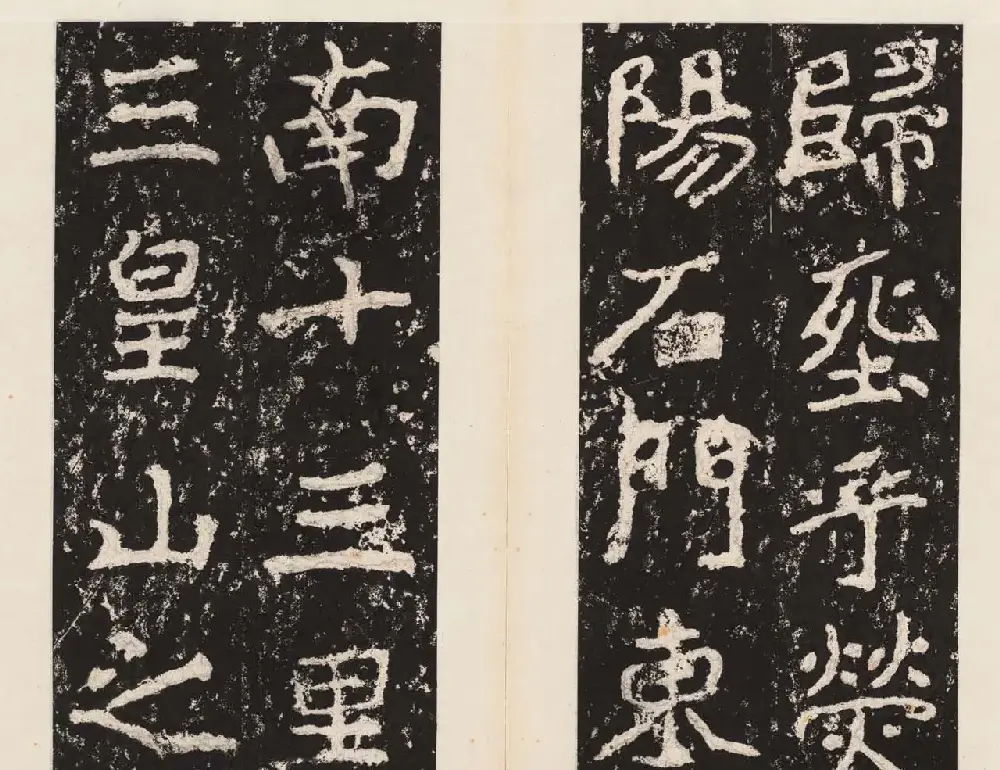 歸葬乎熒
陽石門東
南十三里
三皇山之